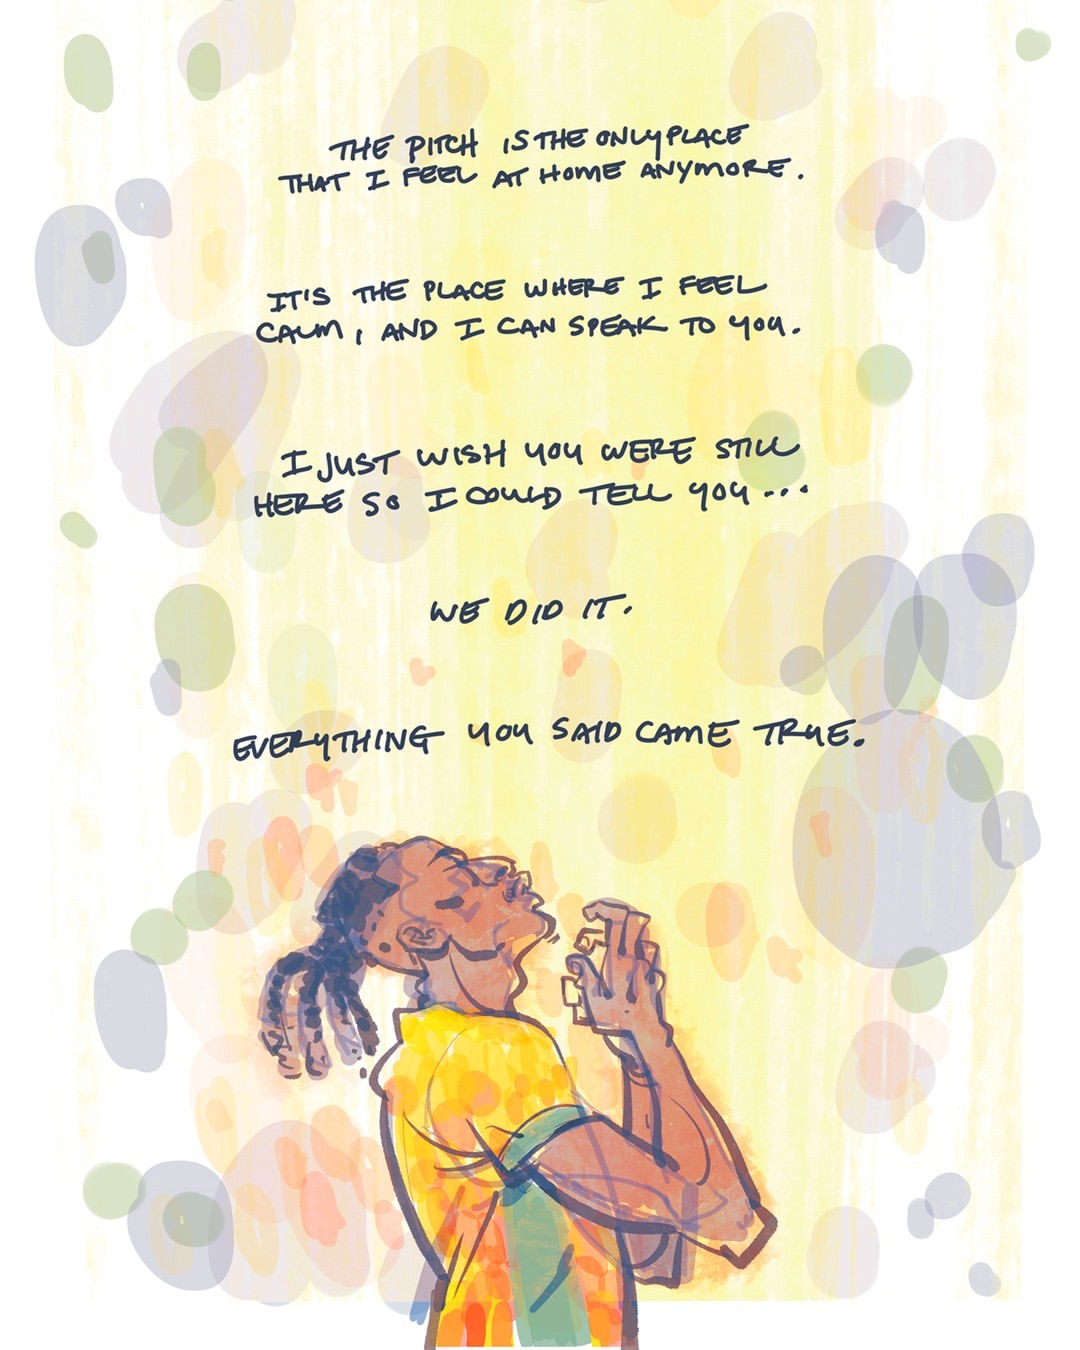 THE PITCH IS THE ONLY PLACE
THAT I FEEL AT HOME ANYMORE.
IT'S THE PLACE WHERE I FEEL
CALM, AND I CAN SPEAK TO YOU.
I JUST WISH YOU WERE STILL
HERE SO I COULD TELL YOU...
WE DID IT.
EVERYTHING YOU SAID CAME TRUE.